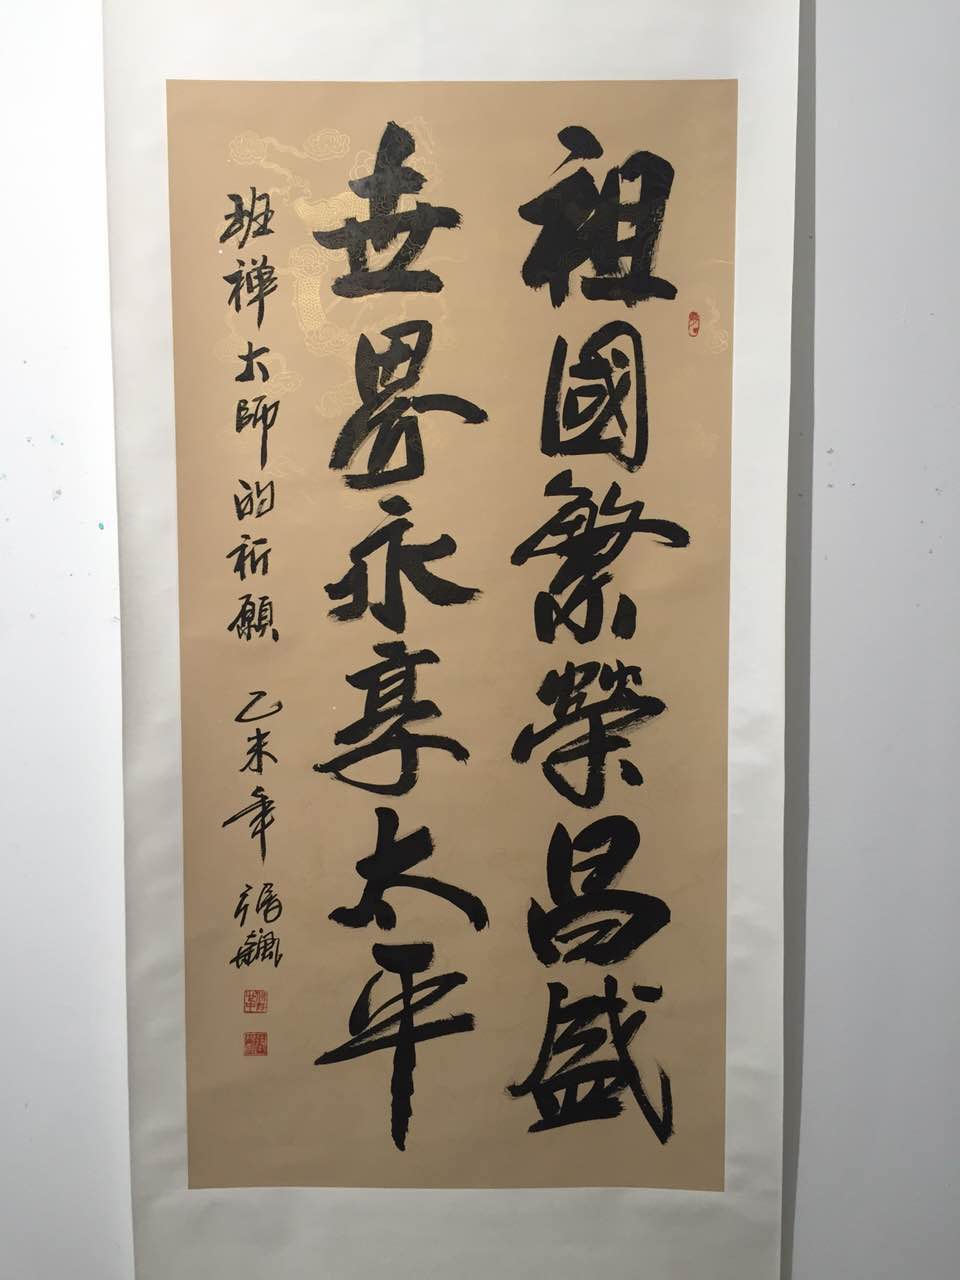 祖國繁榮昌盛
世界永享太平
班禅大师的祈願 乙未年